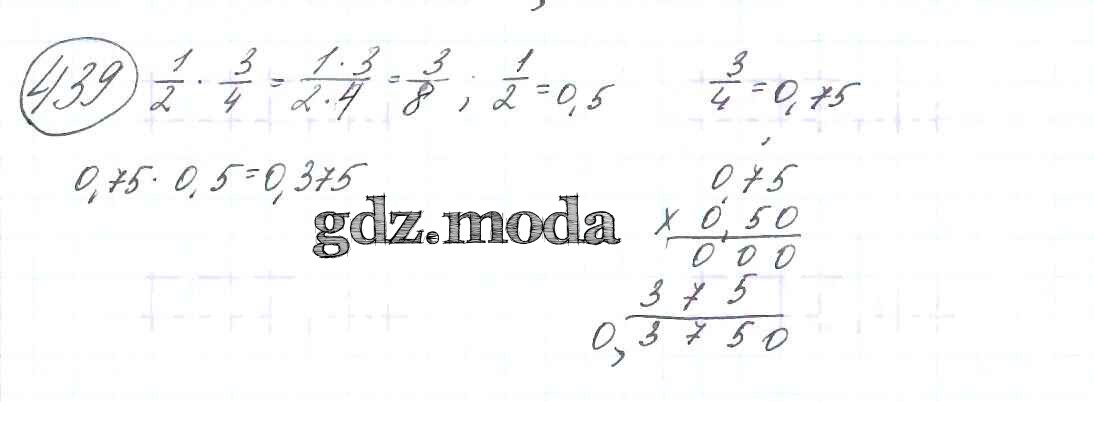 439 1/2 · 3/4 = 1·3/2·4 = 3/8 ; 1/2 = 0,5 3/4 = 0,75
0,75 · 0,5 = 0,375
gdz.moda
0,75
× 0,50
000
375
0,3750